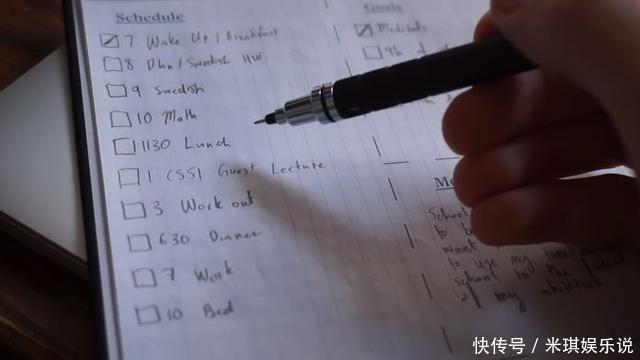 Schedule
7 Wake Up / Breakfast
8 Dhn / Swedish HW
9 Swedish
10 Math
1130 Lunch
1 CSSI Guest Lecture
3 Work out
630 Dinner
7 Work
10 Bed
Goals
Meditate
9h
School
to b
want
to use my time
school to the
of my abilities
快传号 / 米琪娱乐说